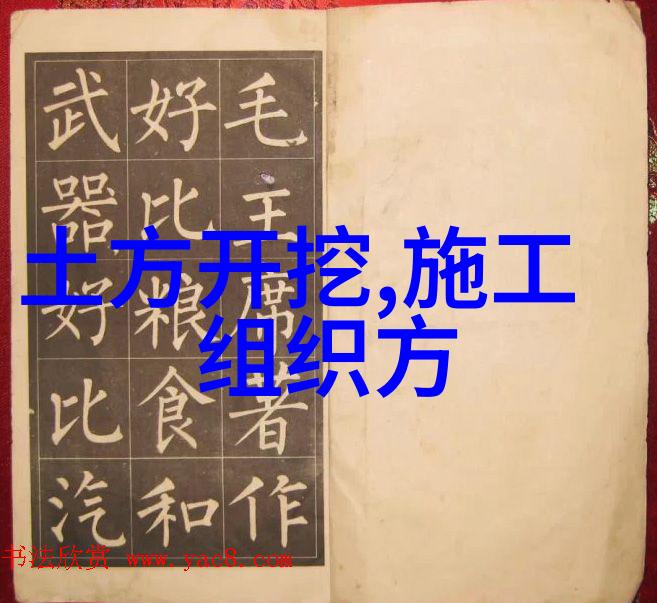 毛主席著作
好比粮食和
武器好比汽
土方开挖,施工
组织方
书法欣赏 www.yac8.com